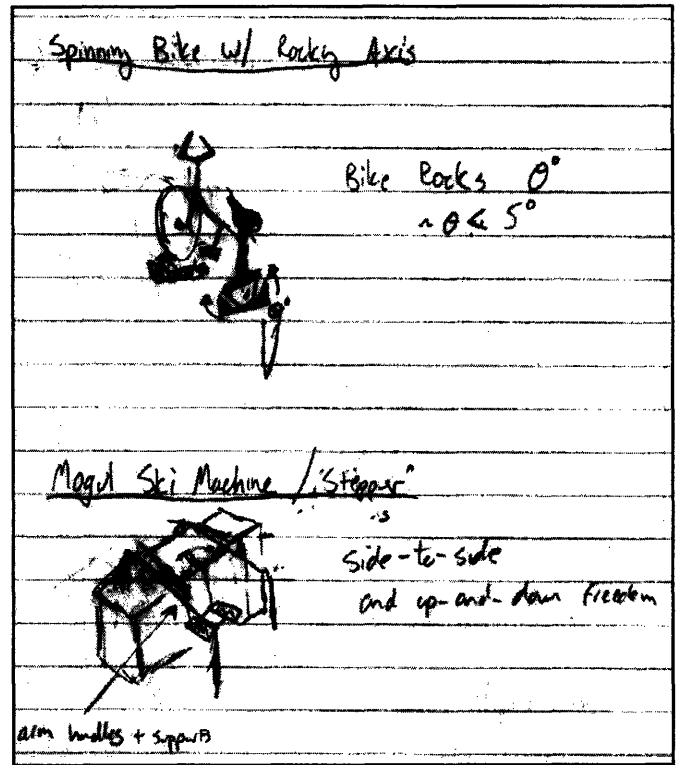 Spinning Bike w/ Rocky Axis
Bike Rocks θ°
~ θ < 5°
Mogul Ski Machine / "Stepper"
side-to-side
and up-and-down freedom
arm handles + supports